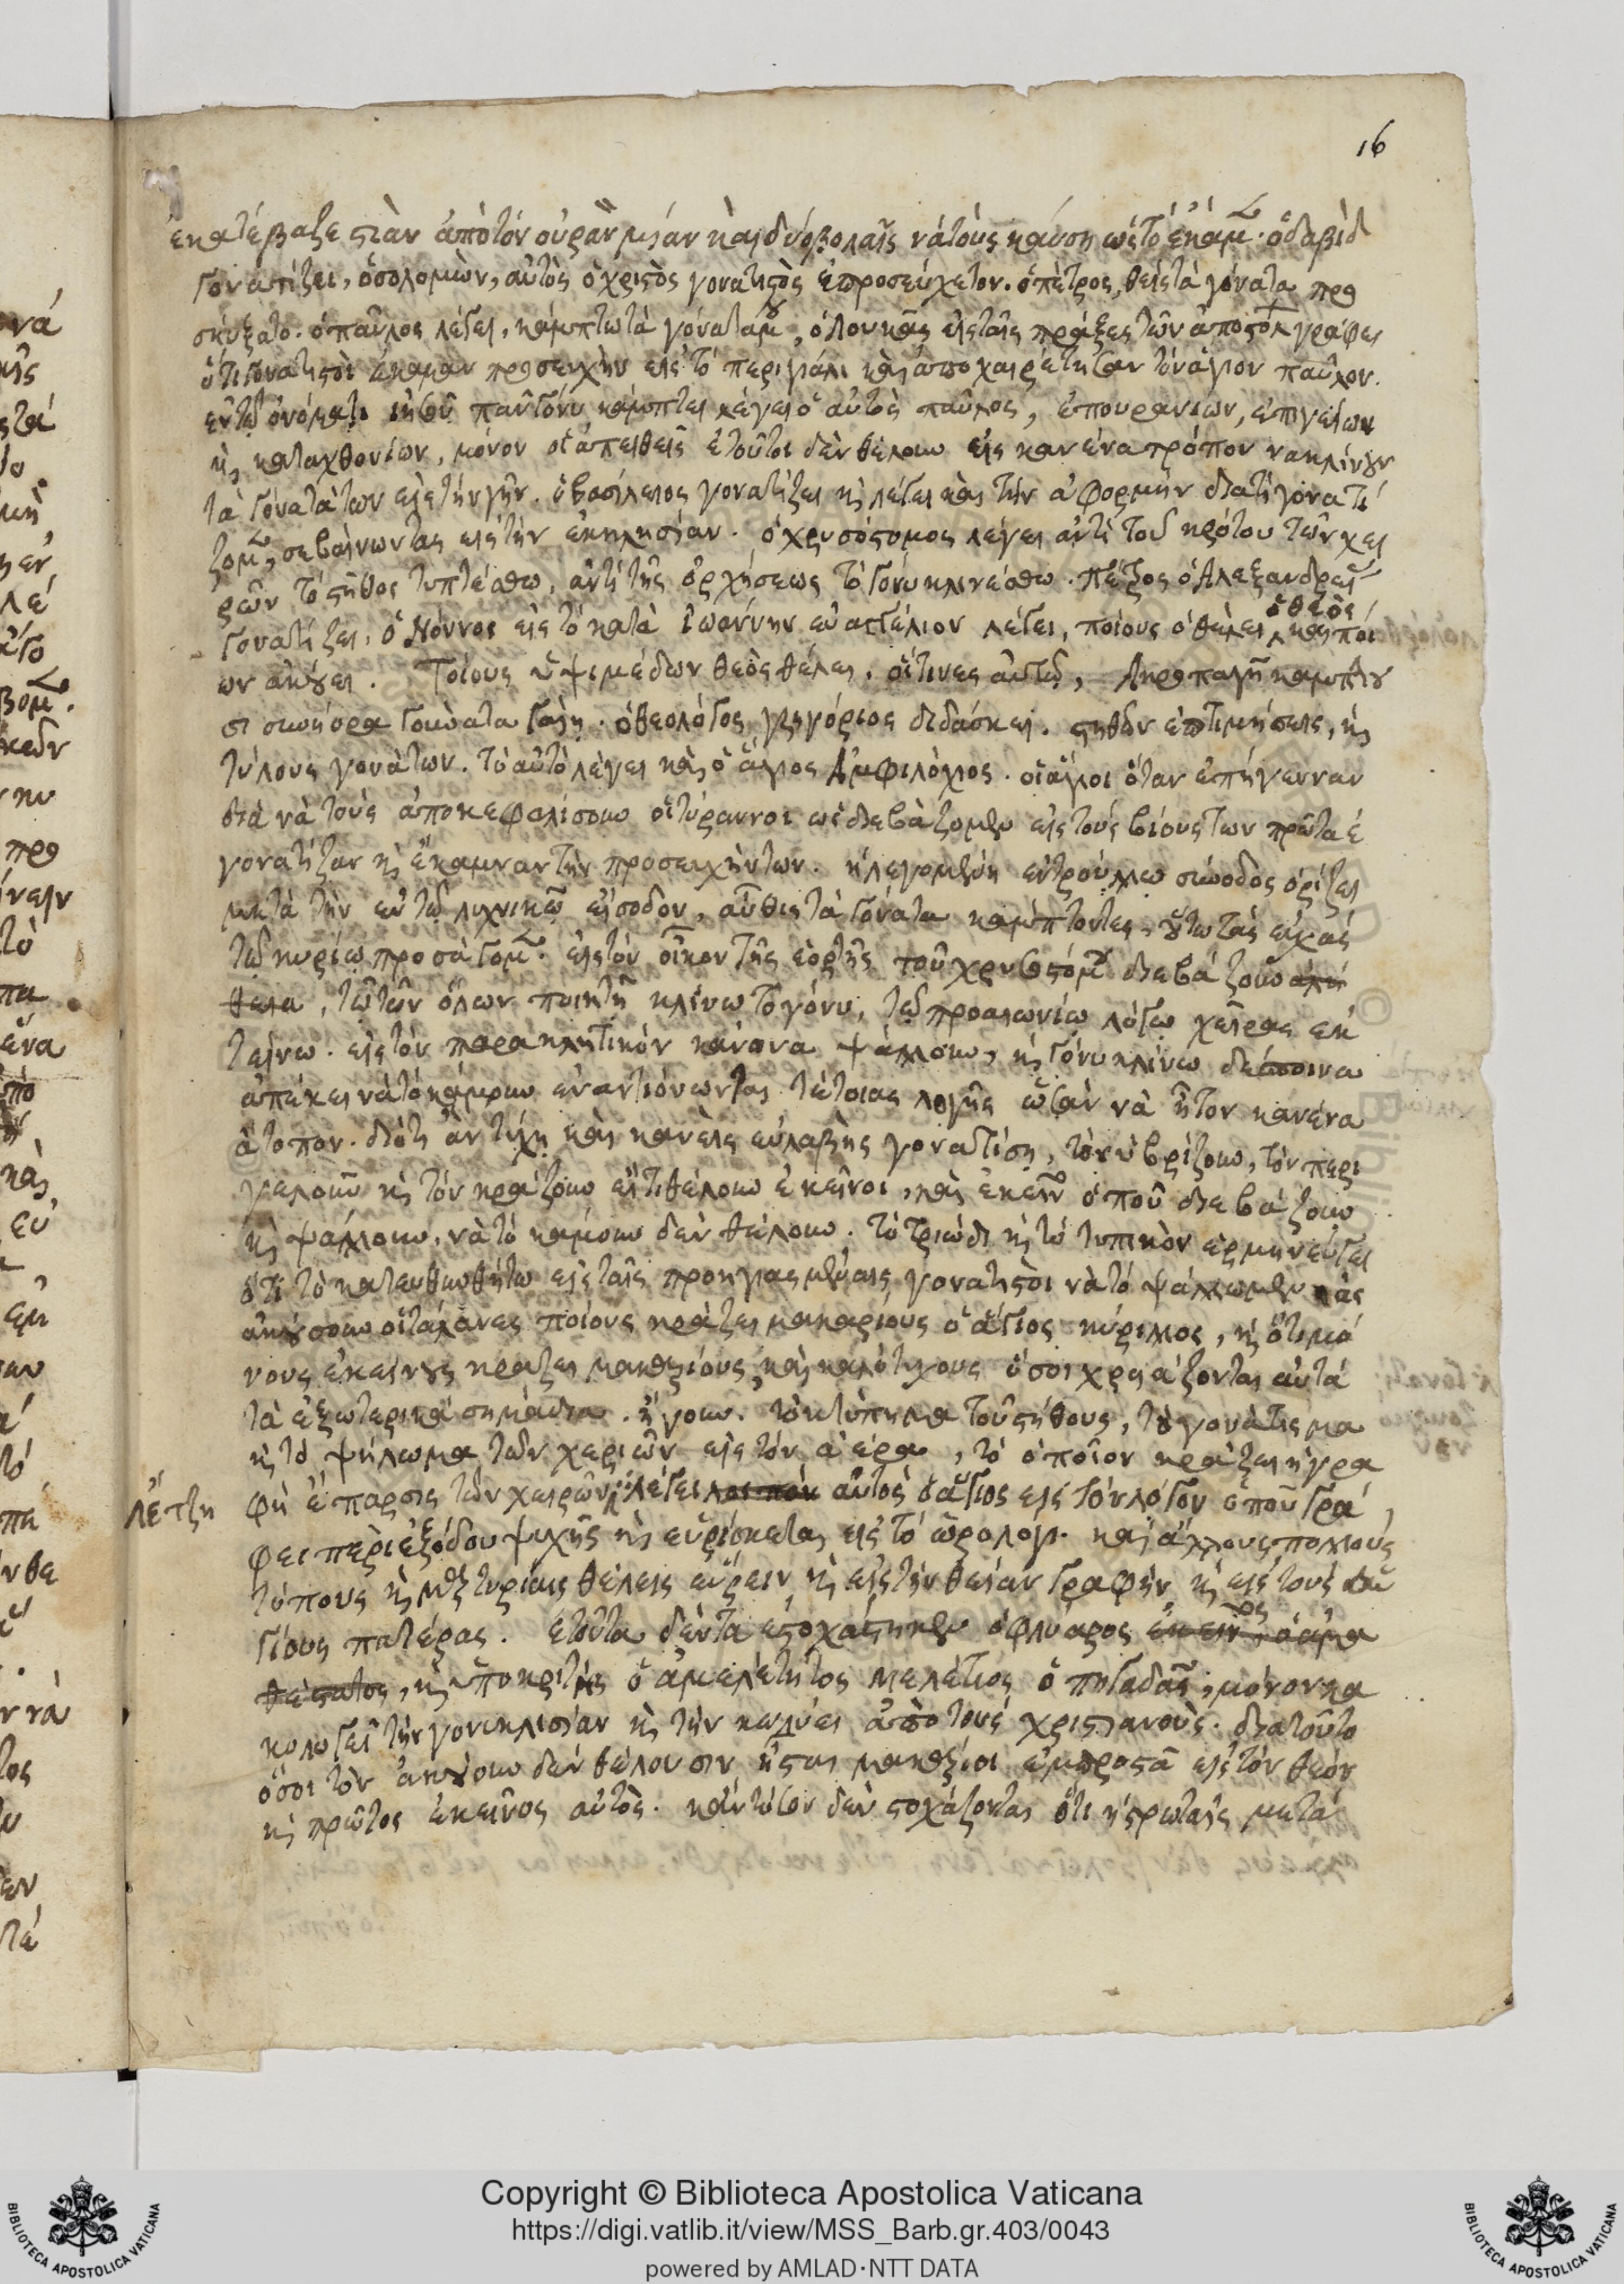 16
ἐκατέβαζε στὰν ἀπὸ τὸν οὐραν μίαν καὶ δύο βολαῖς νὰ τοὺς καύση ὡς τὸ ἔκαμ. ὁ δαβὶδ
γονατίζει, ὁ σολομὼν, αὐτὸς ὁ χριστὸς γονατιστὸς ἐπροσεύχετον. ὁ πέτρος, θεὶς τὰ γόνατα προ
σηύξατο. ὁ παῦλος λέγει, κάμπτω τὰ γόνατά μου, ὁ λουκᾶς εἰς ταῖς πράξες τῶν ἀποστόλ γράφει
ὅτι γονατιστοὶ ἔκαμαν προσευχὴν εἰς τὸ περιγιάλι καὶ ἀποχαιρέτησαν τὸν ἅγιον παῦλον.
ἐν τῷ ὀνόματι ἰησοῦ πᾶν γόνυ κάμπτει λέγει ὁ αὐτὸς παῦλος, ἐπουρανίων, ἐπιγείων
κ καταχθονίων, μόνον οἱ ἀπειθεῖς ἐτοῦτοι δὲν θέλουν εἰς κανένα τρόπον να κλίνουν
τὰ γόνατά των εἰς τὴν γῆν. ὁ βασίλειος γονατίζει κ λέγει καὶ τὴν ἀφορμὴν διατὶ γονατί
ζομ, σεβαίνωντας εἰς τὴν ἐκκλησίαν. ὁ χρυσόστομος λέγει ἀντὶ τοῦ κρότου τῶν χει
ρῶν τὸ στῆθος τυπτέσθω, ἀντὶ τῆς ὀρχήσεως τὸ γόνυ κλινέσθω. πέτρος ὁ Ἀλεξανδρεί
γονατίζει. ὁ Νόννος εἰς τὸ κατὰ ἰωάννην εὐαγγέλιον λέγει, ποίους ὁ θέλει ὁ θεὸς καὶ ποί
ων ἀκούει. Τοίους ὑψιμέδων θεὸς θέλει, οἵτινες αὐτῷ, Ἀκροπαγῆ κάμπτου
σι συνήορα γούνατα γαίη. ὁ θεολόγος γρηγόριος διδάσκει. στηθῶν ἐπιτιμήσεις, κ
τύλους γονάτων. τὸ αὐτὸ λέγει καὶ ὁ ἅγιος Ἀμφιλόχιος. οἱ ἅγιοι ὅταν ἐπήγενναν
διὰ νὰ τοὺς ἀποκεφαλίσουν οἱ τύραννοι ὡς διεβάζομεν εἰς τοὺς βίους των πρῶτα ἐ
γονατίζαν κ ἔκαμναν τὴν προσευχήν των. ἡ λεγομένη ἐν τρούλλω σύνοδος ὁρίζει
μετὰ τὴν ἐν τῷ λυχνικῷ εἴσοδον, αὖθις τὰ γόνατα κάμπτοντες, οὕτω τὰς εὐχὰς
τῷ κυρίω προσάγομ. εἰς τὸν οἶκον τῆς ἑορτῆς τοῦ χρυσοστόμ διεβάζουν
τῷ τῶν ὅλων ποιητῇ κλίνω τὸ γόνυ, τῷ προαιωνίω λόγω χεῖρας ἐκ
τείνω. εἰς τὸν παρακλητικὸν κάνονα ψάλλουν, κ γόνυ κλίνω δέσποινα
ἀπέκει νὰ τὸ κάμουν ἐναντιόνωνται τέτοιας λογῆς ὡσὰν νὰ ἦτον κανένα
ἄτοπον. διότι ἂν τύχη καὶ κανεὶς εὐλαβὴς γονατίση, τὸν ὑβρίζουν, τὸν περι
γελοῦν κ τὸν κράζουν εἴ τι θέλουν ἐκεῖνοι, καὶ ἐκεῖν ὁποῦ διεβάζουν
κ ψάλλουν, νὰ τὸ κάμουν δὲν θέλουν. τὸ τριώδι κ τὸ τυπικὸν ἑρμηνεύγει
ὅτι τὸ κατευθυνθήτω εἰς ταῖς προηγιασμέναις γονατιστοὶ νὰ τὸ ψάλλωμεν ἂς
ἀκούσουν οἱ ταλάνες ποίους κράζει μακαρίους ὁ ἅγιος κύριλλος, κ ὅτι μό
νους ἐκείνους κράζει μακαρίους καὶ καλότυχους ὅσοι χρειάζονται αὐτὰ
τὰ ἐξωτερικὰ σημάδια. ἤγουν. τὸ κτύπημα τοῦ στήθους, τὸ γονάτισμα
κ τὸ ψήλωμα τῶν χεριῶν εἰς τὸν ἀέρα, τὸ ὁποῖον κράζει ἡ γρα
λέγει
φὴ ἔπαρσις τῶν χειρῶν λέγει λοιπὸν αὐτὸς ὁ ἅγιος εἰς τὸν λόγον ὁποῦ γρά
φει περὶ ἐξόδου ψυχῆς κ εὑρίσκεται εἰς τὸ ὡρολόγι. καὶ ἄλλους πολλοὺς
τύπους κ μαρτυρίαις θέλεις εὕρειν κ εἰς τὴν θείαν γραφὴν κ εἰς τοὺς ἁ
γίους πατέρας. ἐτοῦτα δὲν τὰ ἐστοχάστηκεν ὁ φλύαρος ἐκεῖνος, ὁ ἀμα
θέστατος, κ ὑποκριτὴς ὁ ἀμελέτητος Μελέτιος ὁ πηγαδᾶς, μόνον κα
κολογεῖ τὴν γονυκλισίαν κ τὴν κωλύει ἀπὸ τοὺς χριστιανούς. διατοῦτο
ὅσοι τὸν ἀκούουν δὲν θέλουσιν ἦσται μακάριοι ἔμπροστὰ εἰς τὸν θεόν
κ πρῶτος ἐκεῖνος αὐτός. κἂν τόσον δὲν στοχάζονται ὅτι ἡ ἐρωταῖς μετὰ
Copyright © Biblioteca Apostolica Vaticana
https://digi.vatlib.it/view/MSS_Barb.gr.403/0043
powered by AMLAD·NTT DATA
BIBLIOTECA APOSTOLICA VATICANA
BIBLIOTECA APOSTOLICA VATICANA